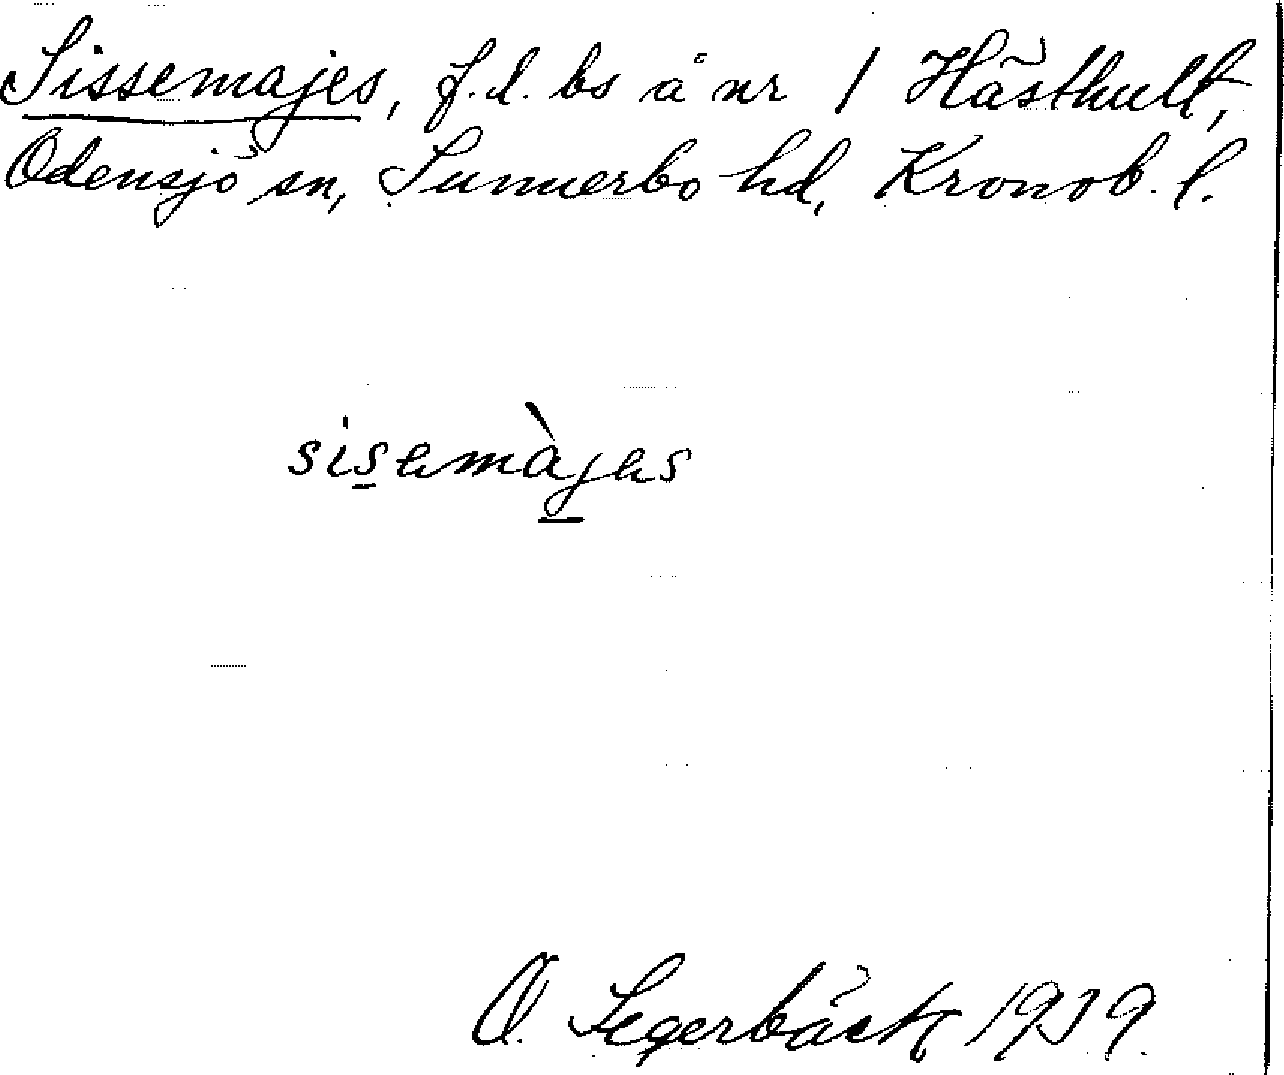 Sissemajes, f.d. bs å nr 1 Hästhult,
Odensjö sn, Sunnerbo hd, Kronob. l.
sisemàjes
O. Segerbäck 1939.